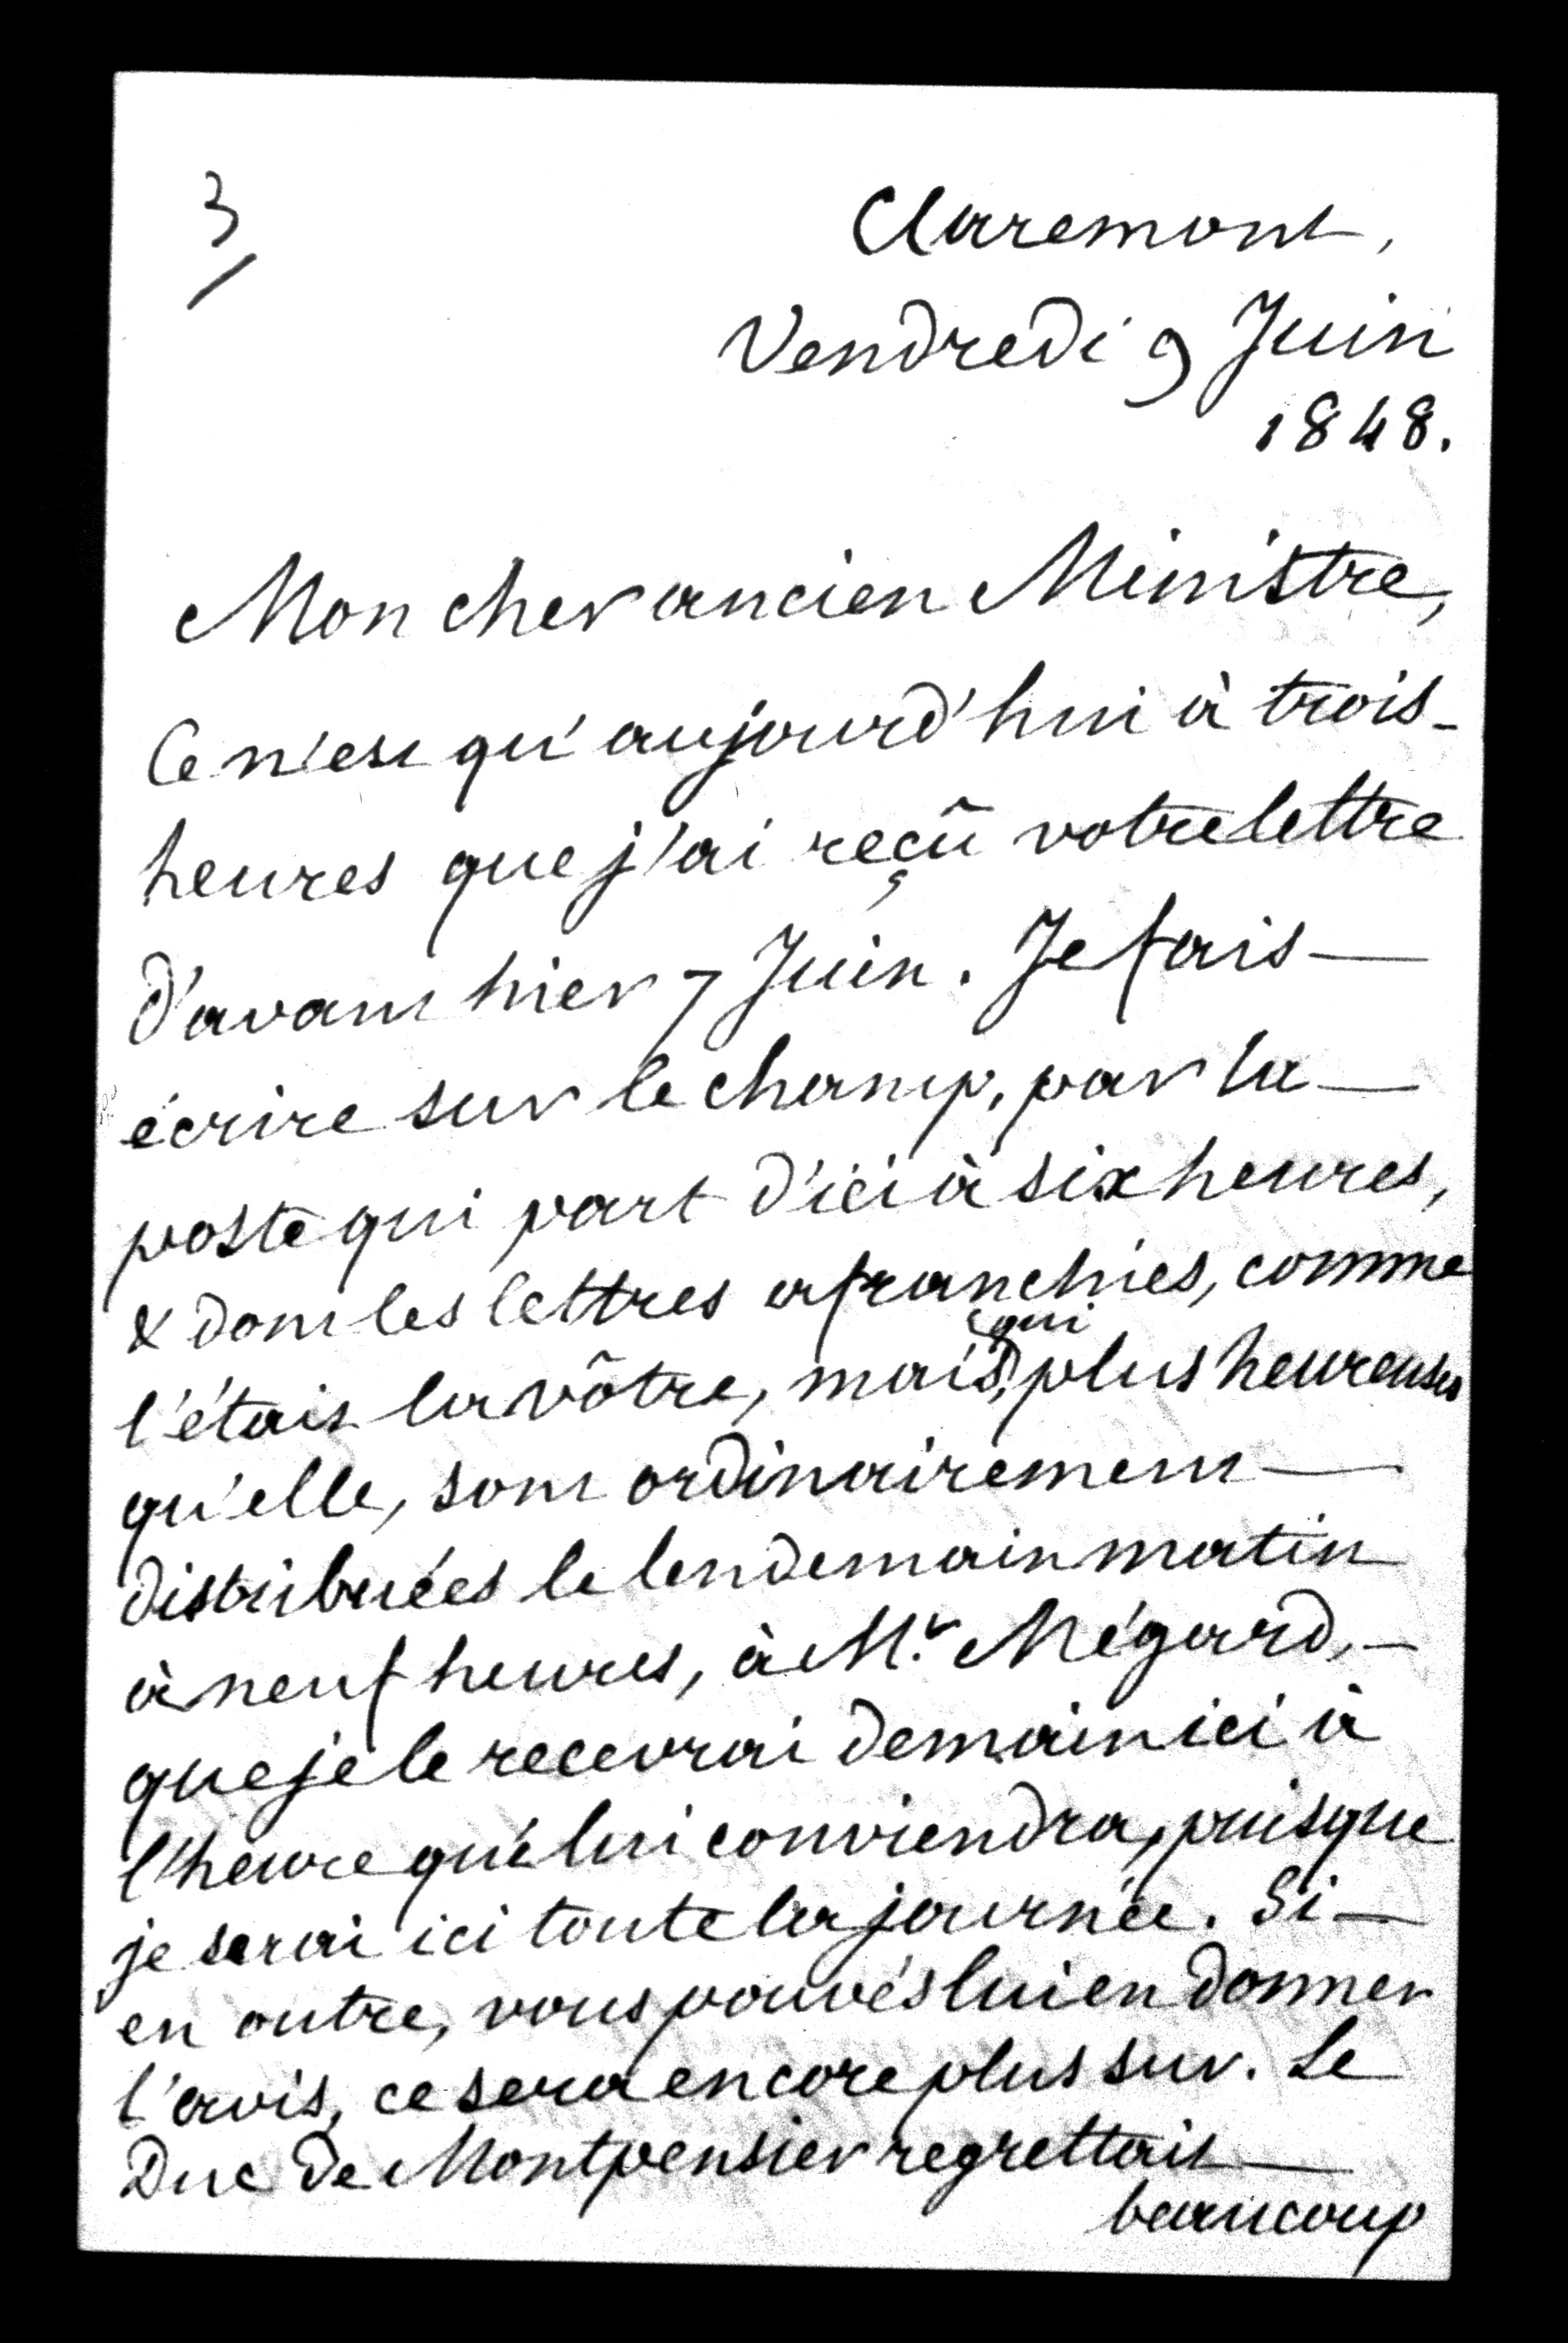 3/
Claremont,
Vendredi 9 Juin
1848.
Mon cher ancien Ministre,
Ce n'est qu'aujourd'hui à trois-
heures que j'ai reçû votre lettre
d'avant hier 7 Juin. Je fais —
écrire sur le champ, par la —
poste qui part d'ici à six heures,
& dont les lettres afranchies, comme
l'était la vôtre, mais, qui plus heureuses
qu'elle, sont ordinairement —
distribuées le lendemain matin
à neuf heures, à Mr. Mégard, —
que je le recevrai demain ici à
l'heure qui lui conviendra, puisque
je serai ici toute la journée. Si —
en outre, vous pouvés lui en donner
l'avis, ce sera encore plus sur. Le
Duc de Montpensier regrettait —
beaucoup